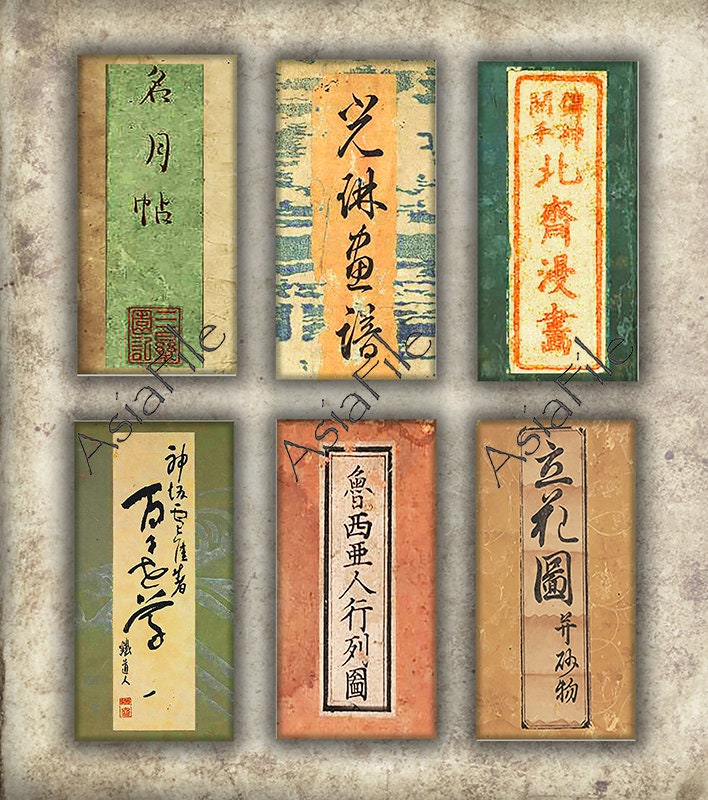 名月帖
光琳画譜
傳神
開手
北齋漫畫
神坂雪佳著
百々世草
一
魯西亜人行列圖
立花圖 并砂物
AsiaFile
AsiaFile
AsiaFile